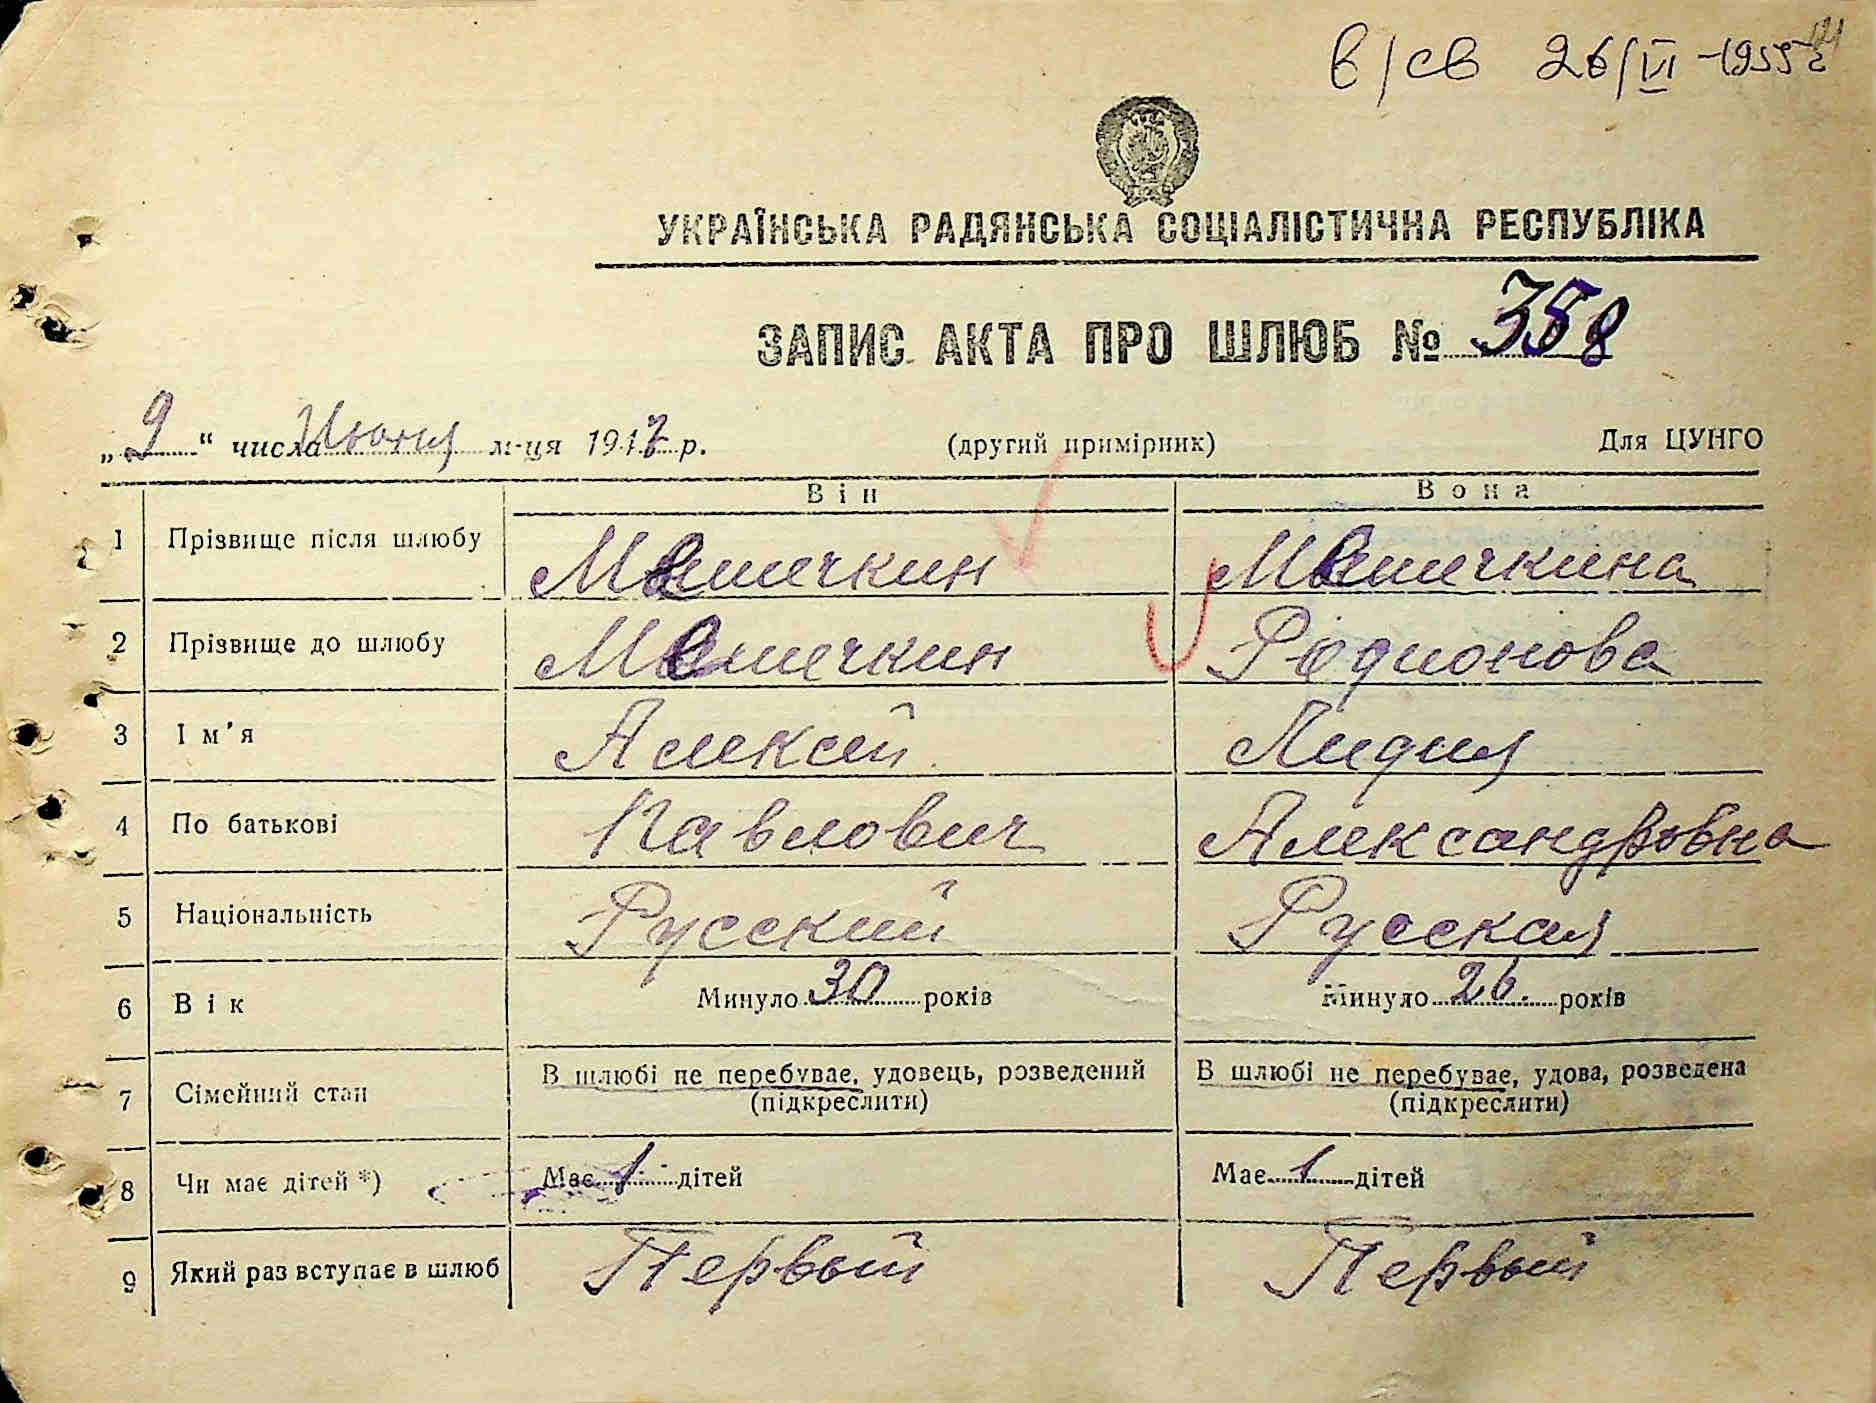 в/св 26/VI-1955г
УКРАЇНСЬКА РАДЯНСЬКА СОЦІАЛІСТИЧНА РЕСПУБЛІКА
ЗАПИС АКТА ПРО ШЛЮБ № 358
„9“ числа Июня м-ця 1947 р. (другий примірник) Для ЦУНГО
Він Вона
1 Прізвище після шлюбу Мешечкин Мешечкина
2 Прізвище до шлюбу Мешечкин Родионова
3 Ім'я Алексей Лидия
4 По батькові Павлович Александровна
5 Національність Русский Русская
6 Вік Минуло 30 років Минуло 26. років
7 Сімейний стан В шлюбі не перебуває, удовець, розведений В шлюбі не перебуває, удова, розведена
(підкреслити) (підкреслити)
8 Чи має дітей *) Має 1 дітей Має 1 дітей
9 Який раз вступає в шлюб Первый Первый